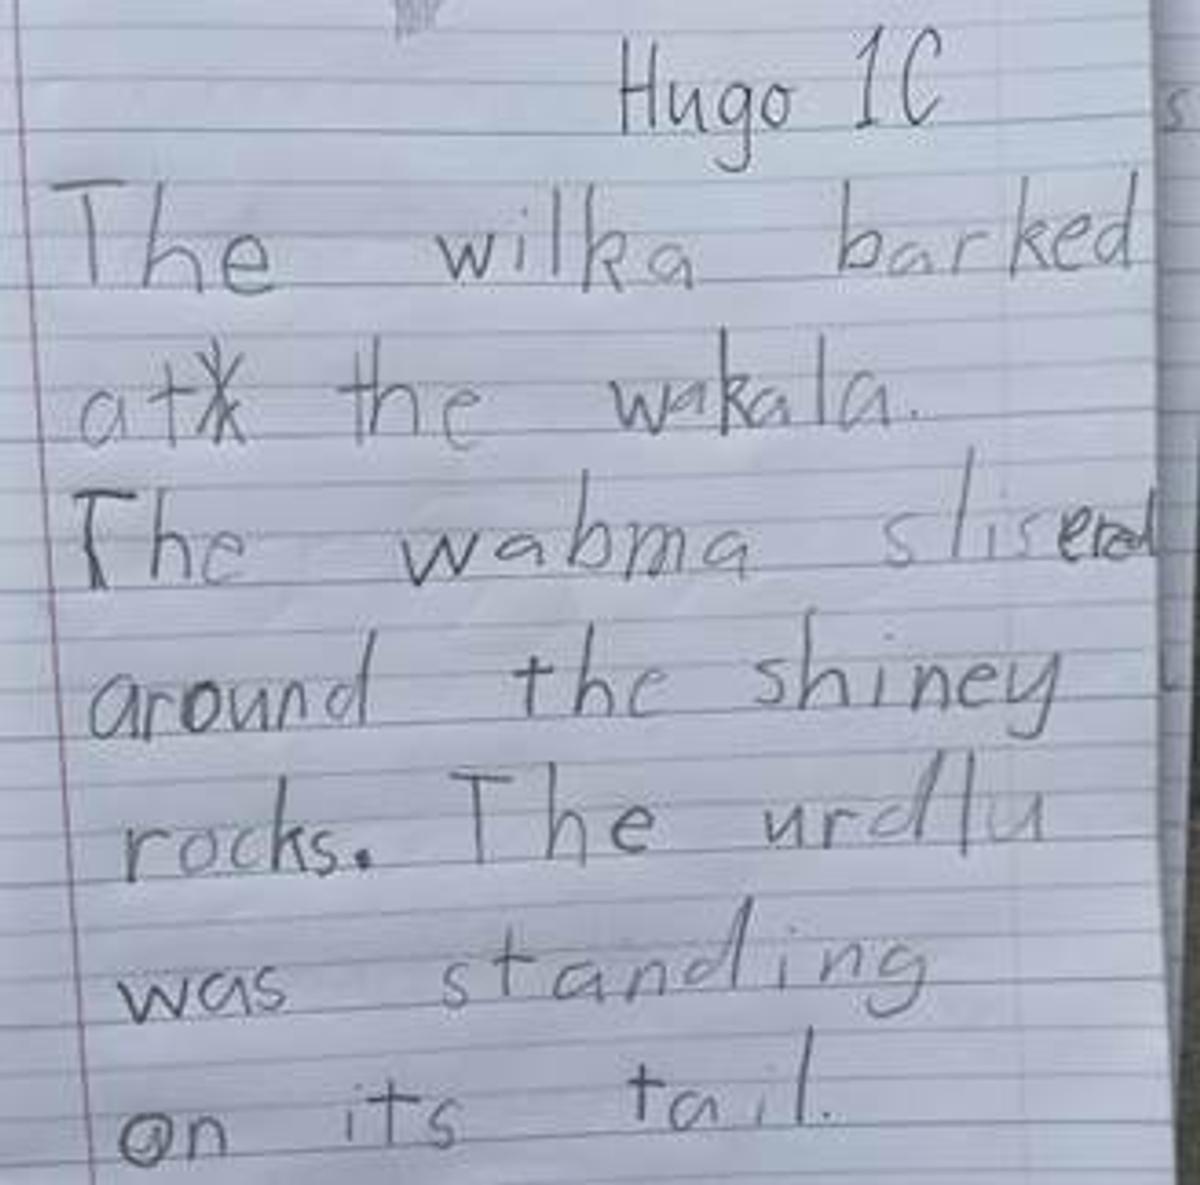 Hugo 1C
The wilka barked
at the wakala.
The wabma slisered
around the shiney
rocks. The urdlu
was standing
on its tail.